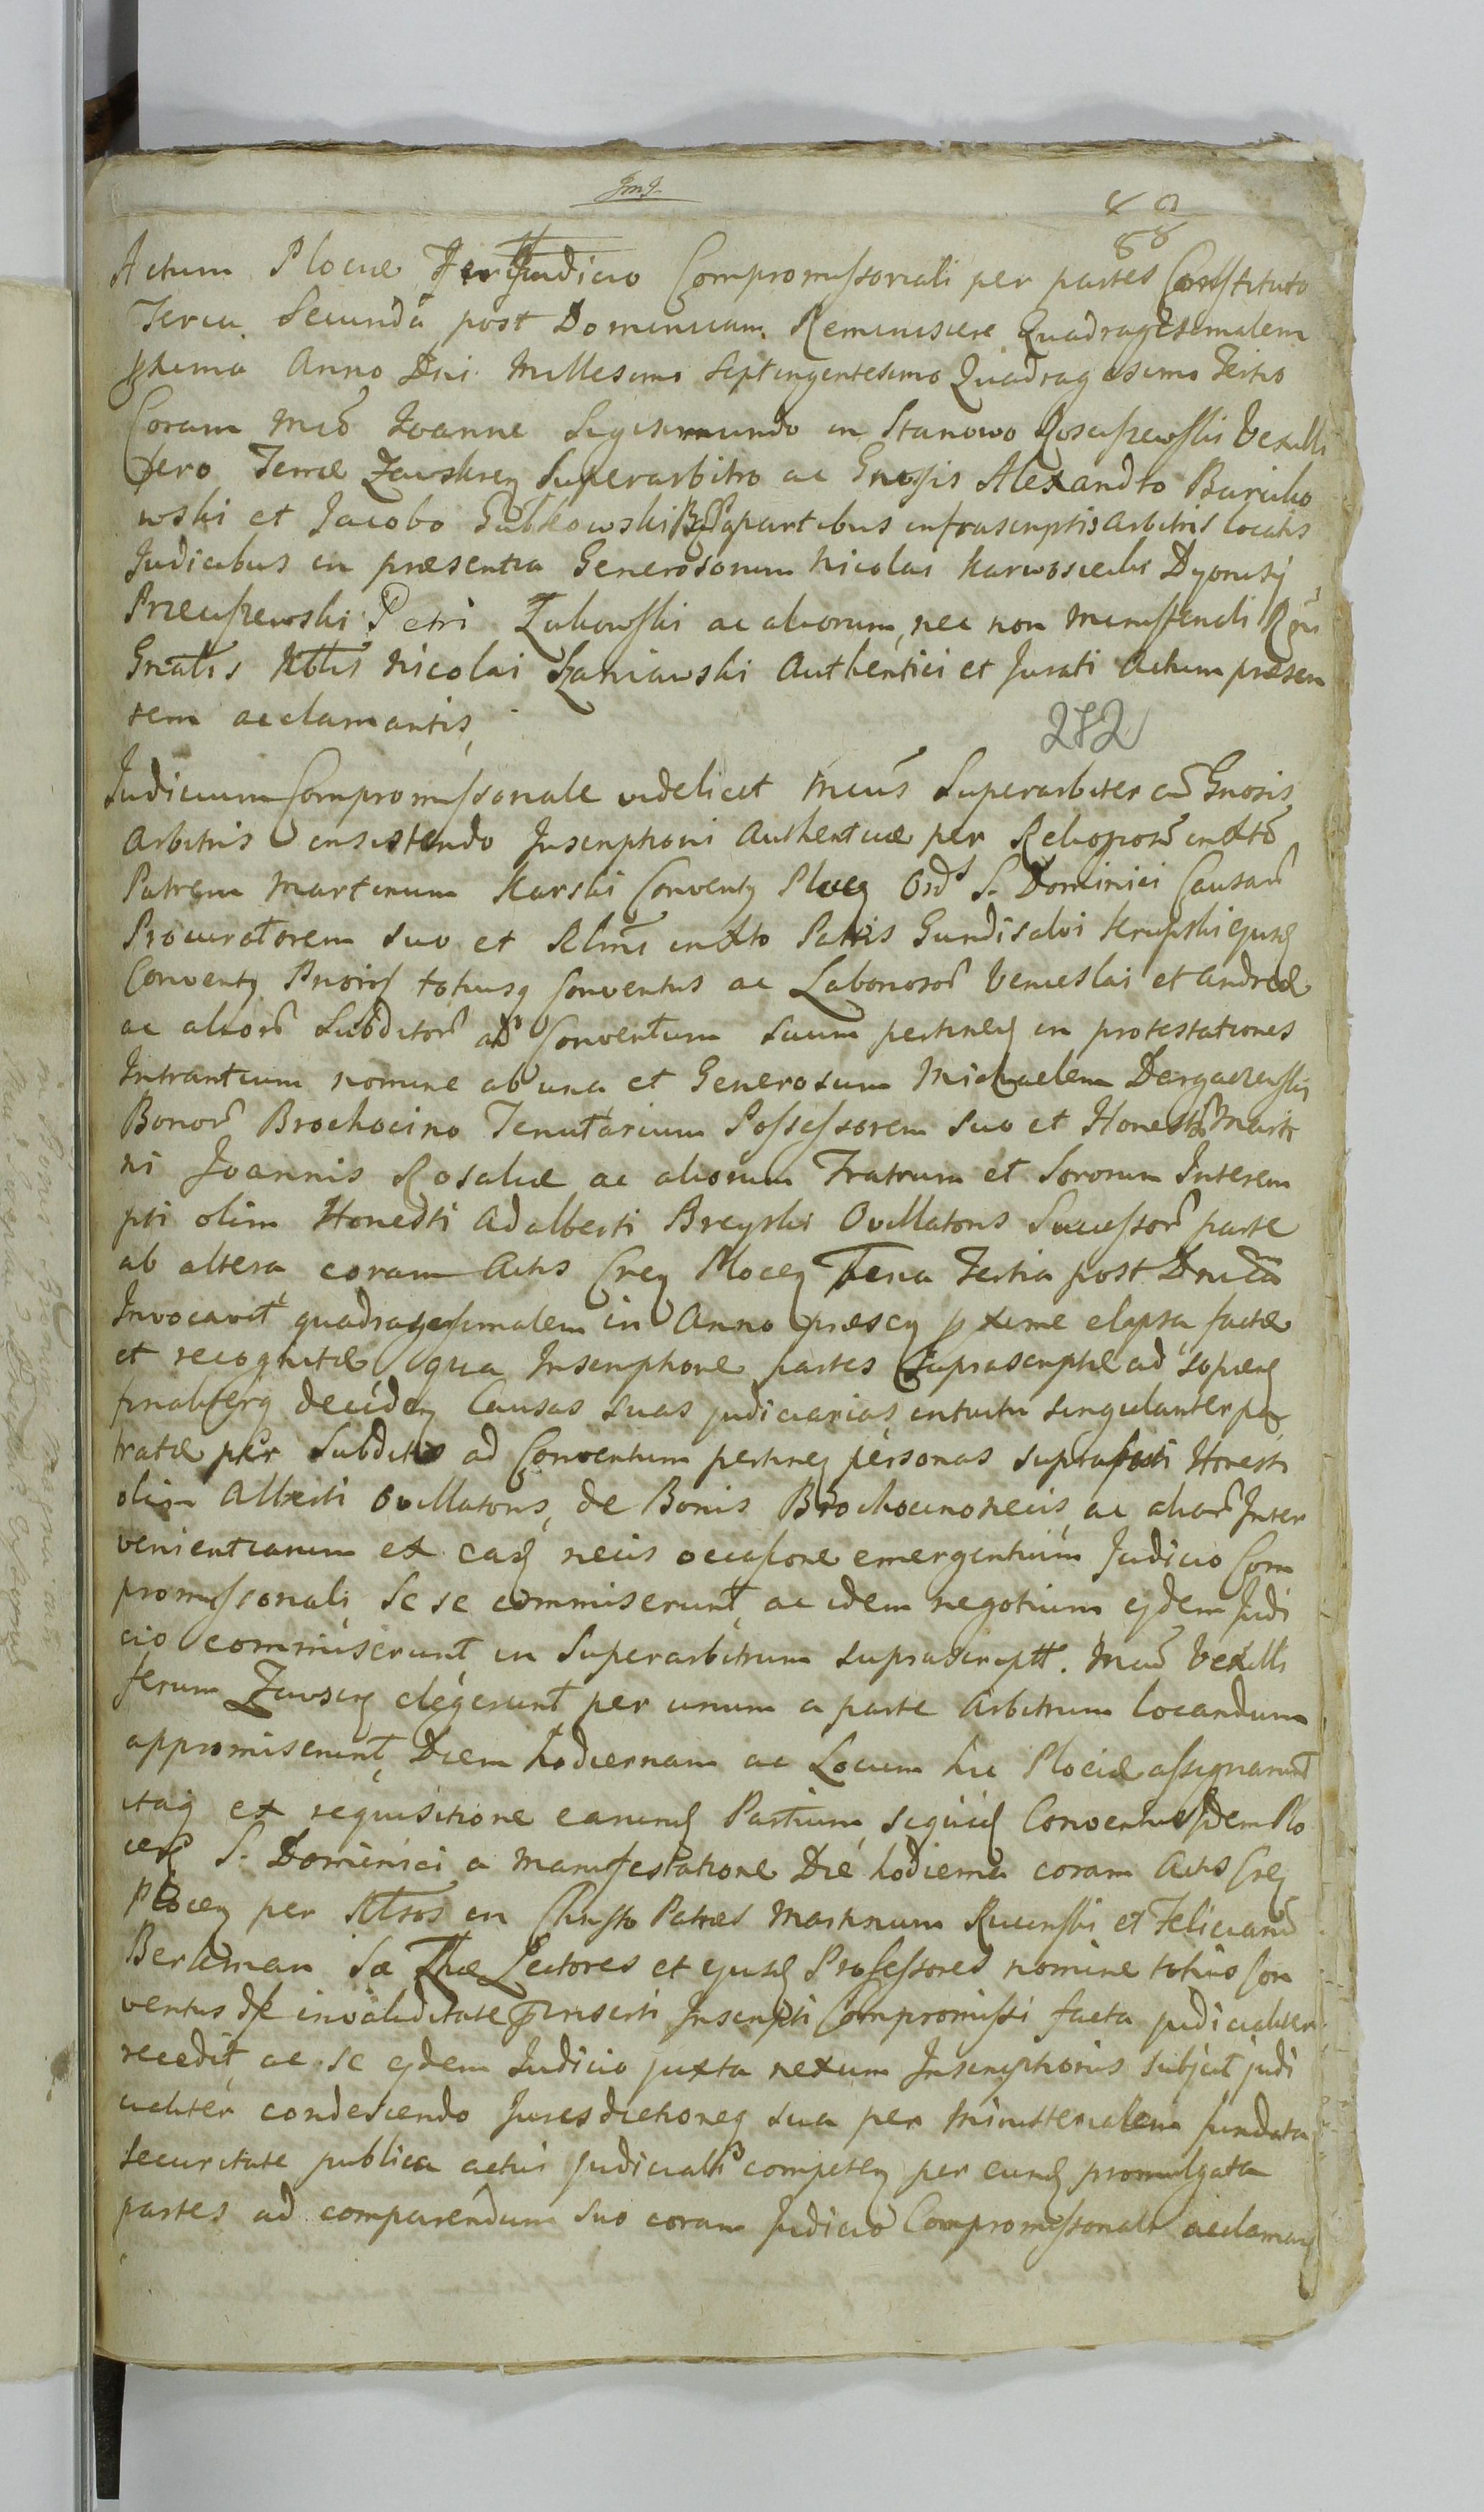 Actum Plociæ Judicio Compromissoriali per partes Constituto
Feria Secunda post Dominicam Reminiscere Quadragesimalem
Anno Dni Millesimo Septingentesimo Quadragesimo Tertio
Coram Mco Joanne Sigismundo in Stanowo Rosciszewski Vexilli
fero Terræ Zawskrzen Superarbitro ac Gnosis Alexandro Barciko
wski et Jacobo Gutkowski partibus infrascriptis Arbitris locatis
Judicibus in præsentia Generosorum Nicolai Karwosiecki Dyonisy
Przeciszewski Petri Zukowski ac aliorum, nec non Ministeriali Rgni
Gnalis Nicolai Szaniawski Authentici et Jurati Actum præsen
tem acclamantis,
282
Judicium Compromissoriale videlicet Mcus Superarbiter cū Gnosis
Arbitris insistendo Inscriptioni Authenticæ per Religiosū in Xto
Patrem Martinum Karski Conventq Plocen Ord S. Dominici Causarū
Procuratorem suo et in Xto Patris Gundisalvi Krupski ejusq
Conventq Prioris totiusq Conventus ac Laboriosorū Venceslai et Andreæ
ac aliorū Subditorū ad Conventum suum pertinen in protestationes
Intrantium nomine ab una et Generosum Michaelem Dargaczewski
Bonorū Brochocino Tenutarium Possessorem suo et Honestorū Marti
ni Joannis Rosaliæ ac aliorum Fratrum et Sororum Interem
pti olim Honesti Adalberti Breyski Ovillatoris Successorū parte
ab altera coram Actis Cren Plocen Feria Tertia post Dnicā
Invocavit quadragesimalem in Anno præsen pxime elapsa factæ
et recognitæ, qua Inscriptione partes suprascriptæ ad sopien
finaliterq deciden Causas suas judiciarias, intuitu singulariter per
tratæ per Subditos ad Conventum pertinen personas suprafati Honesti
olim Alberti Ovillatoris, de Bonis Brochocino necis, ac aliarū Inter
venientiarum ex eadē necis occasione emergentium Judicio Com
promissoriali se se commiserunt, ac idem negotium ejdem Judi
cio commiserunt, in Superarbitrum suprascriptt. Mcū Vexilli
ferum Zawscren elegerunt per unum a parte Arbitrum locandum
appromiserunt, Diem hodiernam ac Locum hic Plociæ assignarunt
itaq ex requisitione earumq Partium, siquid Conventus Plo
cen S. Dominici a manifestatione Die hodierna coram Actis Cren
Plocen per in Christo Patres Martinum Rucinski et Felicianū
Berkman Sæ Thæ Lectores et ejusq Professores nomine totius Con
ventus de invaliditate Inscripti Compromissi facta judicialiter
recedit, ac se ejdem Judicio juxta nexum Inscriptionis subjicit judi
cialiter condescendo Jurisdictioneq sua per Ministerialem fundata
securitate publica actui judiciali competen per eunq promulgata
partes ad comparendum suo coram Judicio Compromissoriali acclaman